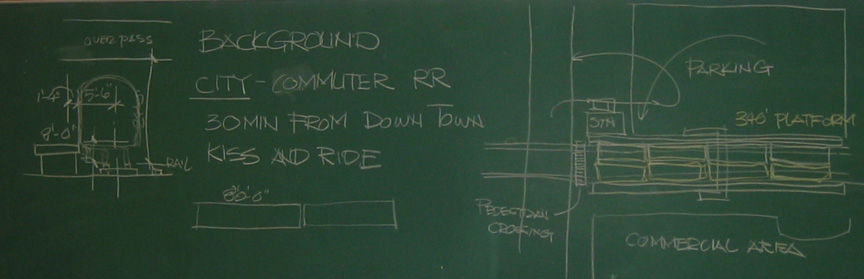 OVERPASS
1'-4"
5'-6"
8'-0"
RAIL
BACKGROUND
CITY - COMMUTER RR
30MIN FROM DOWN TOWN
KISS AND RIDE
PARKING
STN
340' PLATFORM
PEDESTRIAN
CROSSING
COMMERCIAL AREA